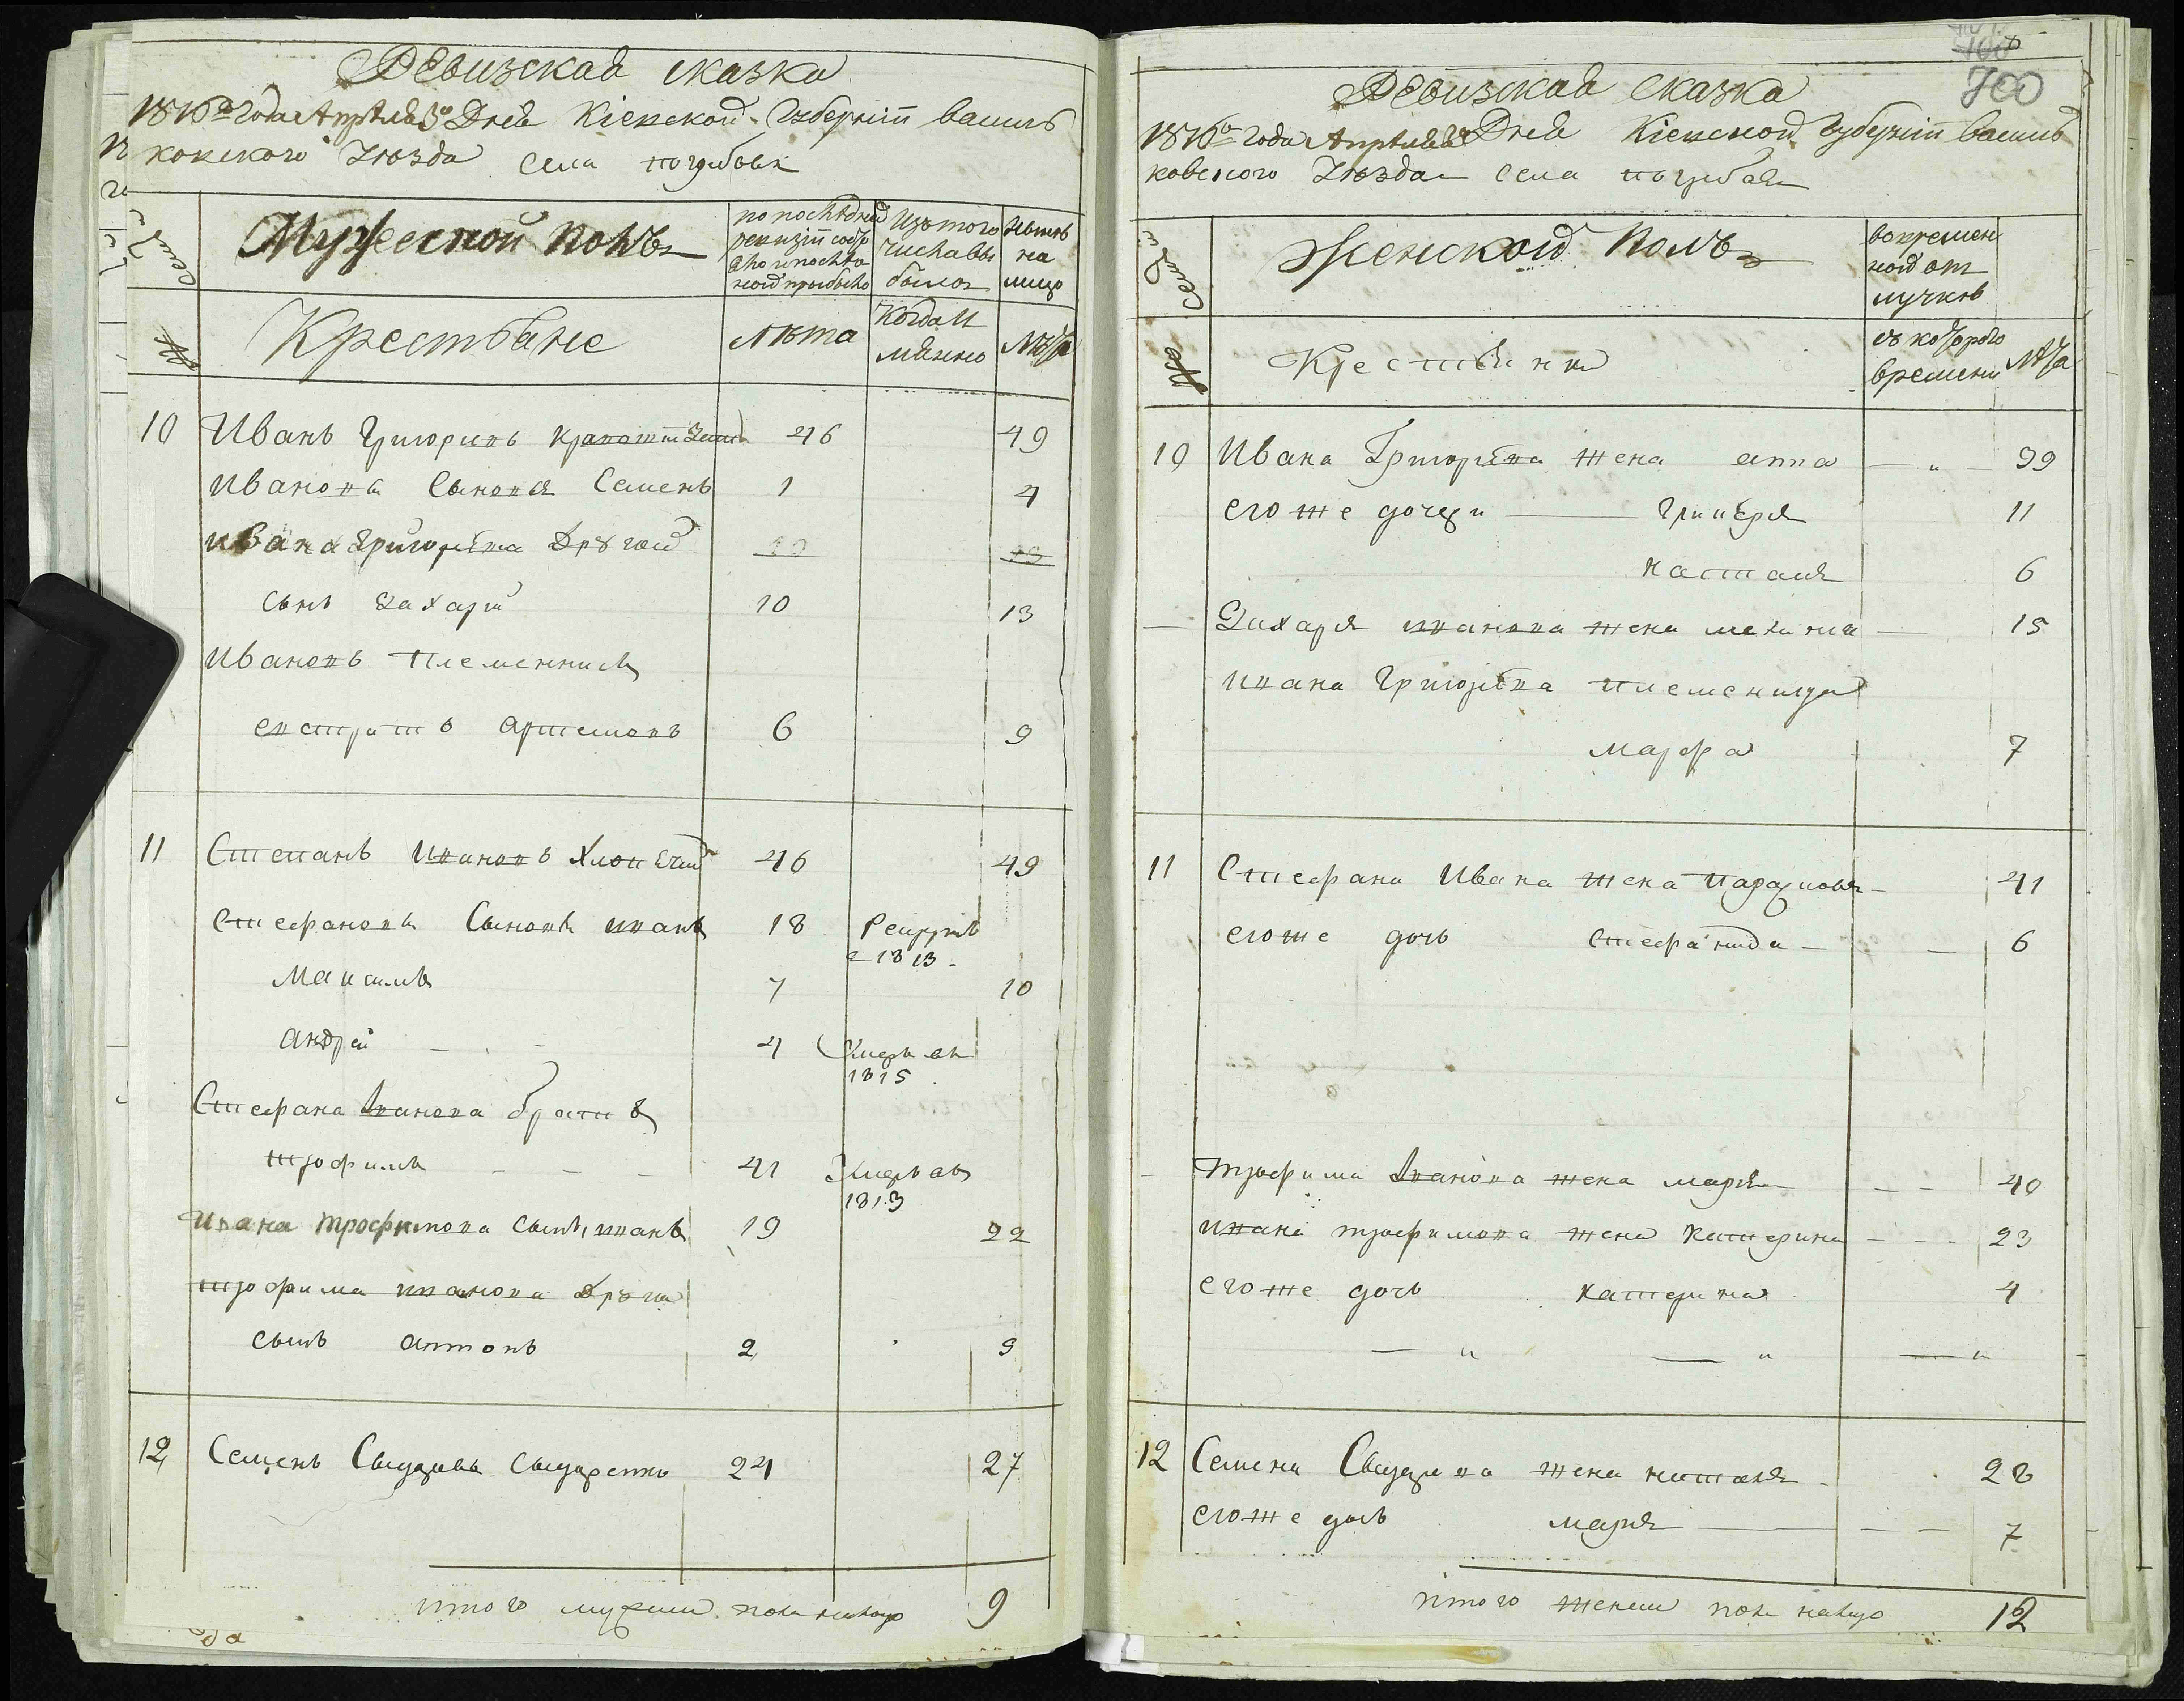 Ревизская сказка
1816го года Апреля 30 Дня Кіевской Губерніи василь
ковского уюзда села погребов
Семьи
Мужеской полъ
по последней ревизіи состояло и после ной прибыло
Изъ того числа выбыло
Ныне на лицо
№
Крестьяне
Лѣта
Когда именно
Лѣта
10 Иванъ Григориевъ 46 49
Ивановы Сыновя Семенъ 1 4
Ивана Григориева Другой
сынъ Захарій 10 13
Ивановъ племенникъ
евстратъ артемовъ 6 9
11 Степанъ Ивановъ 46 49
Стефановы Сыновя иванъ 18 Рекрутъ
1813
Максимъ 7 10
андрей 4 Умеръ въ
1815
Стефана Иванова братъ
трофимъ 41 Умеръ въ
1813
Ивана трофимова сынъ иванъ 19 22
трофима иванова другой
сынъ антонъ 2 9
12 Семенъ Сидоровъ Сидоренко 24 27
итого мужеска пола налицо 9
700
Ревизская сказка
1816го года Апреля Дня Кіевской Губерніи василь
ковского уюзда села погребов
Семьи
Женской полъ
во времен ной от лучке
№
Крестьянки
съ которого времени
Лѣта
10 Ивана Григориева жена анна — „ — 39
его же дочери — 11
настася 6
Захаря иванова жена мелания — 15
ивана Григориева племеница
марфа 7
11 Стефана Ивана жена парасковя — 41
егоже дочь стефанида — — 6
трофима Иванова жена марія — — 40
ивана трофимова жена катерина — — — 23
егоже дочь катерина 4
— „ — „ — „
12 Семена Сидорова жена наталя 28
егоже дочь марія — — — 7
итого женска пола налицо 12